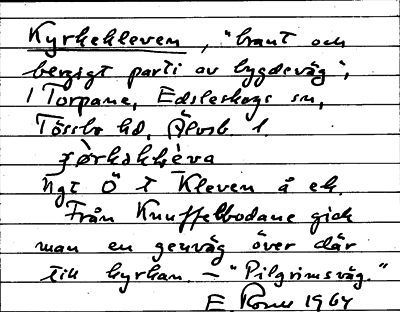 Kyrkekleven, "brant och
bergigt parti av bygdeväg",
/ Torpane, Edsleskogs sn,
Tössbo hd, Älvsb. l.
ngt Ö t Kleven å ek.
Från Knuffelbodane gick
man en genväg över där
till kyrkan. – "Pilgrimsväg."
E 1964